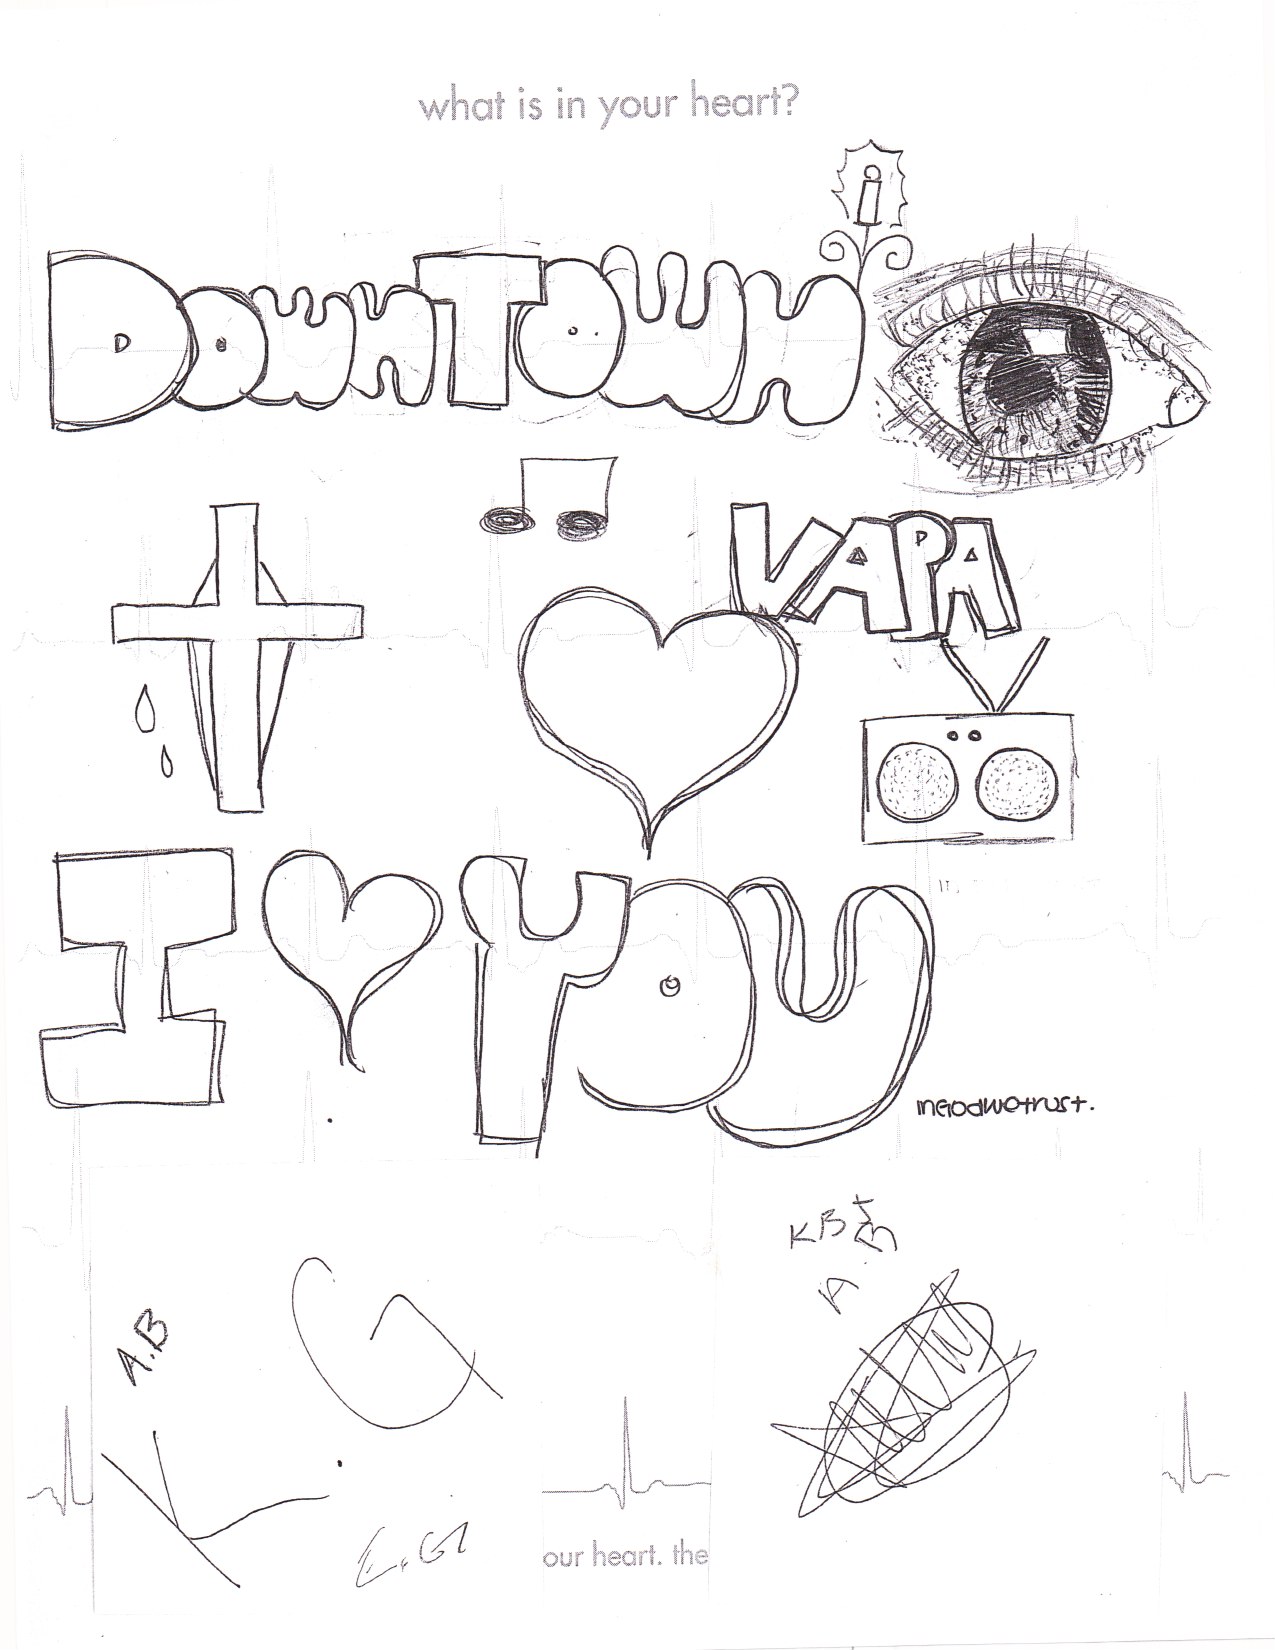 what is in your heart?
DOWNTOWN
VAPA
I YOU
inGodwetrust.
KB
A.B
K. G
E.G
our heart. the